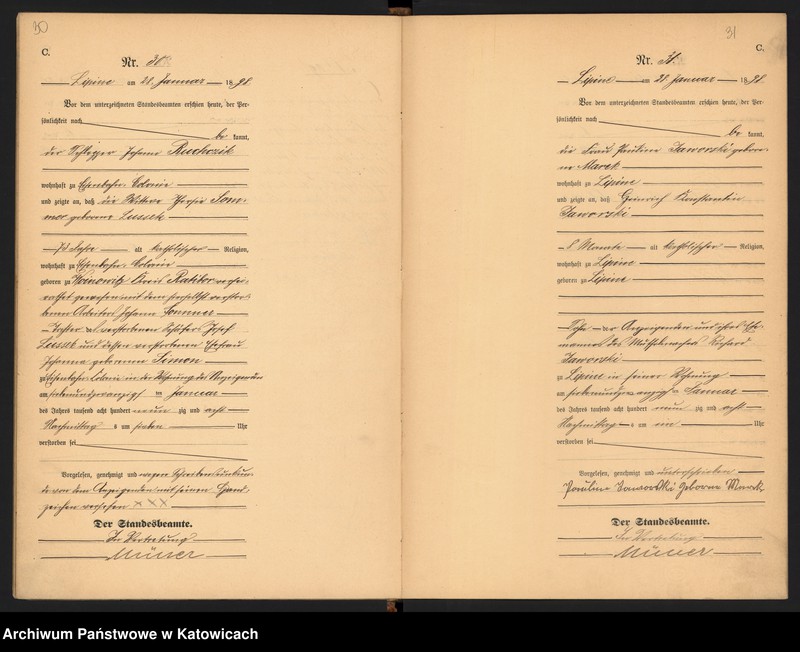 30
C.
Nr. 30
Lipine am 28. Januar 1898.
Vor dem unterzeichneten Standesbeamten erschien heute, der Per-
sönlichkeit nach
be kannt,
der Schlepper Johann Ruchczik
wohnhaft zu Eisenbahn-Colonie
und zeigte an, daß die Witwe Som-
mer geborene
Jahre alt katholischer Religion,
wohnhaft zu Eisenbahn-Colonie
geboren zu Woinowitz Kreis Ratibor verhei-
rathet gewesen mit dem verstor-
benen Arbeiter Johann Sommer
Tochter der verstorbenen Schäfers Josef
und dessen verstorbenen Ehefrau
Johanna geborenen Simon
zu Eisenbahn-Colonie in der Wohnung des Anzeigenden
am siebenundzwanzigsten Januar
des Jahres tausend acht hundert neun zig und acht
Nachmittag s um sieben Uhr
verstorben sei
Vorgelesen, genehmigt und wegen Schreibensunkun-
de von dem Anzeigenden mit seinem Hand-
zeichen versehen XXX
Der Standesbeamte.
In Vertretung
31
C.
Nr. 31
Lipine am 28. Januar 1898.
Vor dem unterzeichneten Standesbeamten erschien heute, der Per-
sönlichkeit nach
be kannt,
die Frau Pauline Jaworski gebore-
ne Marek
wohnhaft zu Lipine
und zeigte an, daß Heinrich Konstantin
Jaworski
8 Monate alt katholischer Religion,
wohnhaft zu Lipine
geboren zu Lipine
Sohn der Anzeigenden und ihres Ehe-
mannes des Richard
Jaworski
zu Lipine in seiner Wohnung
am siebenundzwanzigsten Januar
des Jahres tausend acht hundert neun zig und acht
Nachmittag s um Uhr
verstorben sei
Vorgelesen, genehmigt und unterschrieben
Pauline Jaworski geborne Marek
Der Standesbeamte.
In Vertretung
Archiwum Państwowe w Katowicach